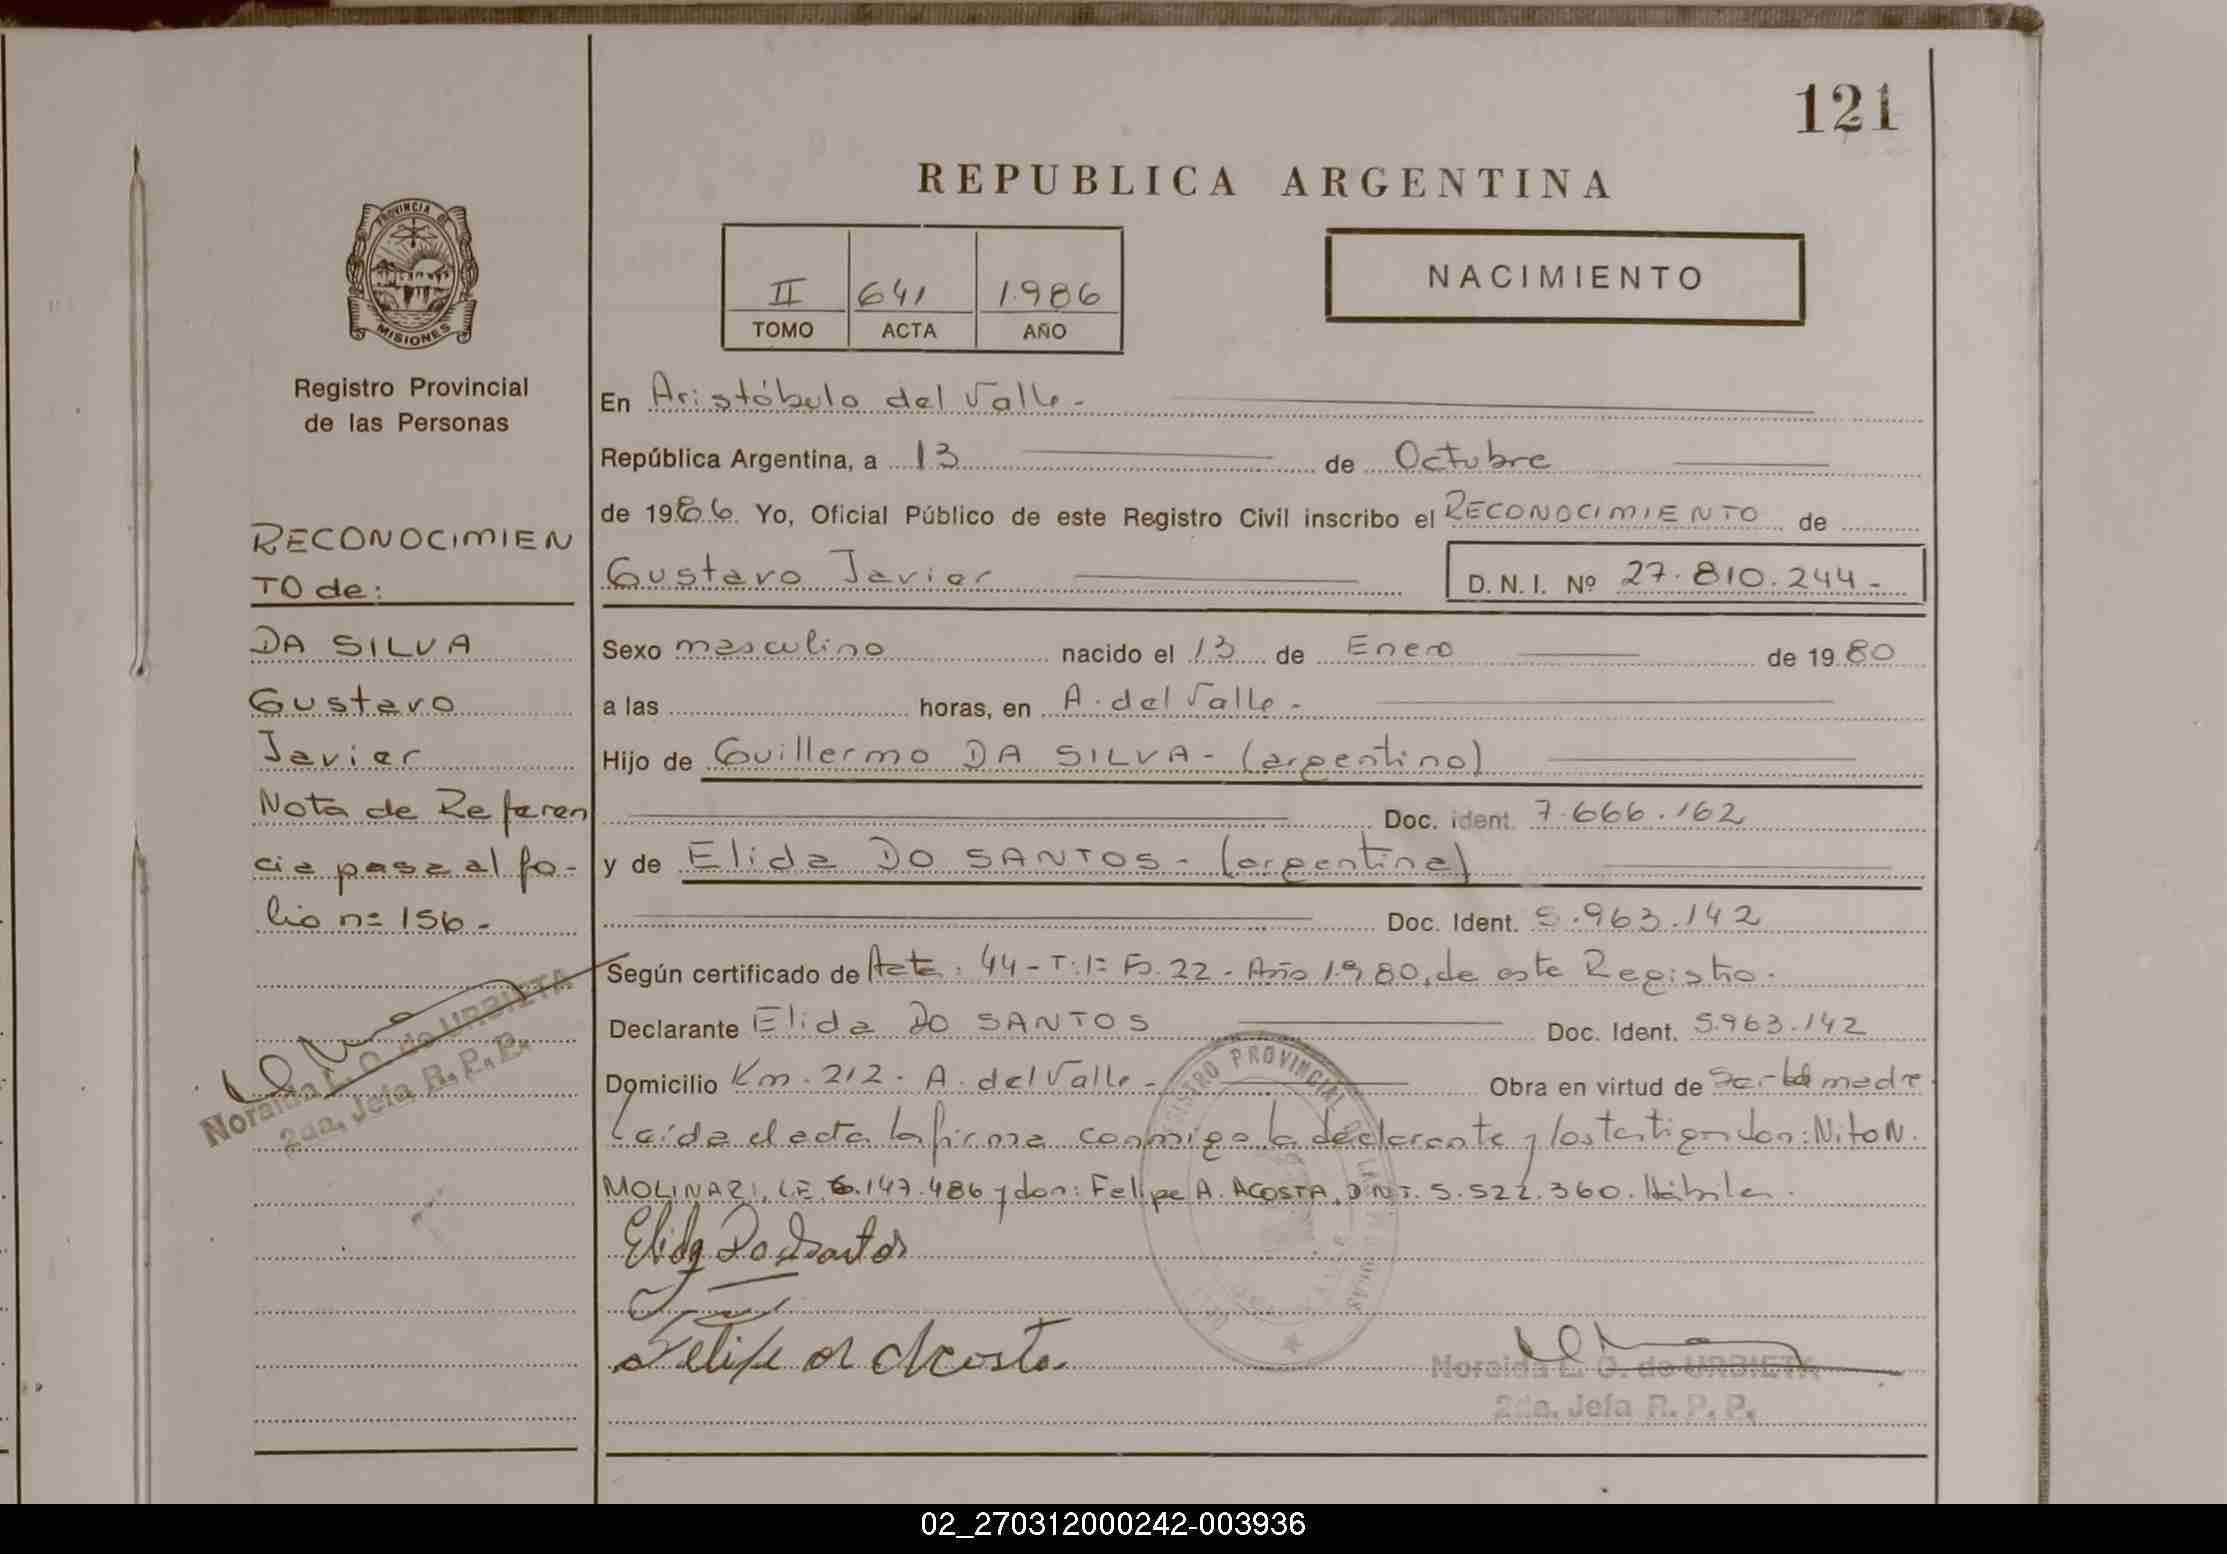 121
REPUBLICA ARGENTINA
PROVINCIA DE
MISIONES
Registro Provincial
de las Personas
II 641 1.986
TOMO ACTA AÑO
NACIMIENTO
RECONOCIMIEN
TO de:
DA SILVA
Gustavo
Javier
Nota de Referen
cia pasa al fo-
lio nº 156.-
Noraida L. O. de URBIETA
2da. Jefa R. P. P.
En Aristóbulo del Valle.-
República Argentina, a 13 de Octubre
de 1986. Yo, Oficial Público de este Registro Civil inscribo el RECONOCIMIENTO de
Gustavo Javier D. N. I. Nº 27.810.244.-
Sexo masculino nacido el 13 de Enero de 1980
a las horas, en A. del Valle.-
Hijo de Guillermo DA SILVA- (argentino)
Doc. ident. 7.666.162
y de Elida DO SANTOS- (argentina)
Doc. Ident. 5.963.142
Según certificado de Acta: 44-T:1= Fº. 22- Año 1.980, de este Registro.
Declarante Elida DO SANTOS Doc. Ident. 5.963.142
Domicilio Km. 212. A. del Valle.- Obra en virtud de Ser la madre
Leída el acta la firma conmigo la declarante y los testigos don: Nito N.
MOLINARI, LE 6.147.486 y don: Felipe A. ACOSTA, D.N.I. 5.522.360. Hábiles.
Elida Do Santos
Felipe A Acosta
REGISTRO PROVINCIAL DE LAS PERSONAS
Noraida L. O. de URBIETA
2da. Jefa R. P. P.
02_270312000242-003936